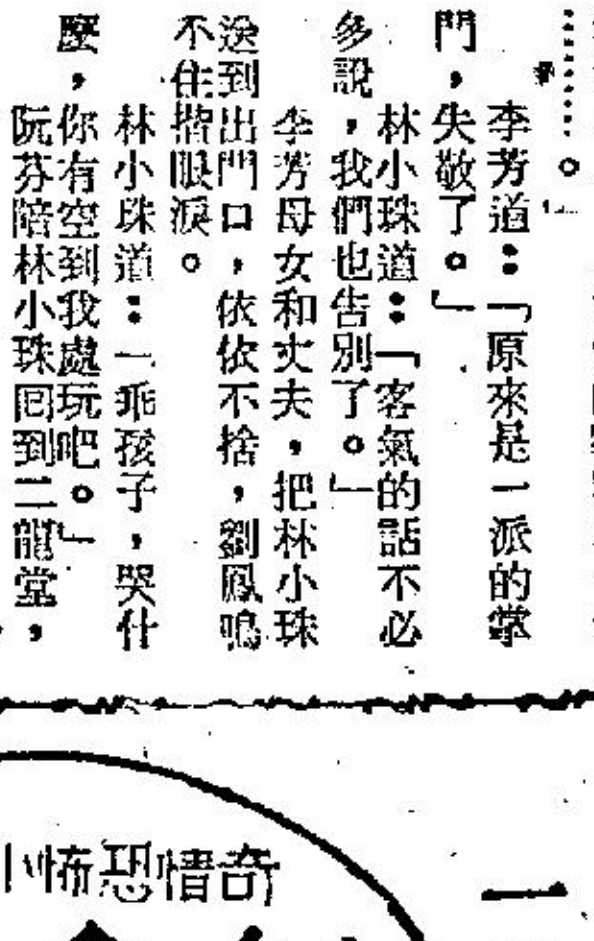 ……。」
李芳道：「原來是一派的掌
門，失敬了。」
林小珠道：「客氣的話不必
多說，我們也告別了。」
李芳母女和丈夫，把林小珠
送到出門口，依依不捨，劉鳳鳴
不住揩眼淚。
林小珠道：「乖孩子，哭什
麼，你有空到我處玩吧。」
阮芬陪林小珠回到二龍堂，
奇情恐怖小